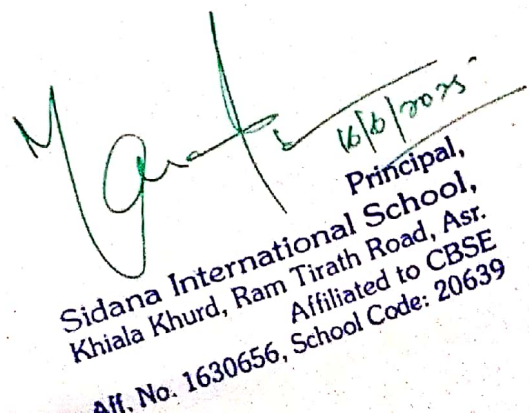 16/6/2025
Principal,
Sidana International School,
Khiala Khurd, Ram Tirath Road, Asr.
Affiliated to CBSE
Aff. No. 1630656, School Code: 20639